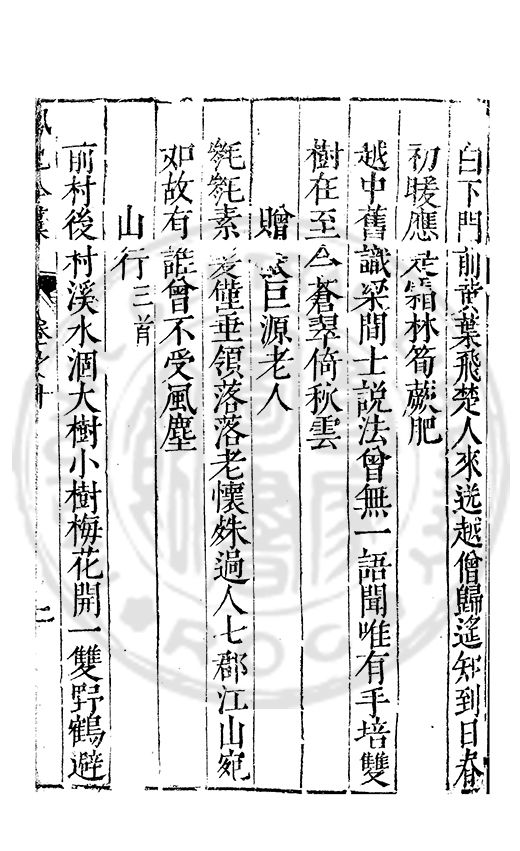 白下門前黃葉飛楚人來送越僧歸遙知到日春
初暖應是霜林筍蕨肥
越中舊識梁間士說法曾無一語聞唯有手培雙
樹在至今蒼翠倚秋雲
贈 巨源老人
毿毿素髮僅垂領落落老懷殊過人七郡江山宛
如故有誰曾不受風塵
山行三首
前村後村溪水涸大樹小樹梅花開一雙野鶴避